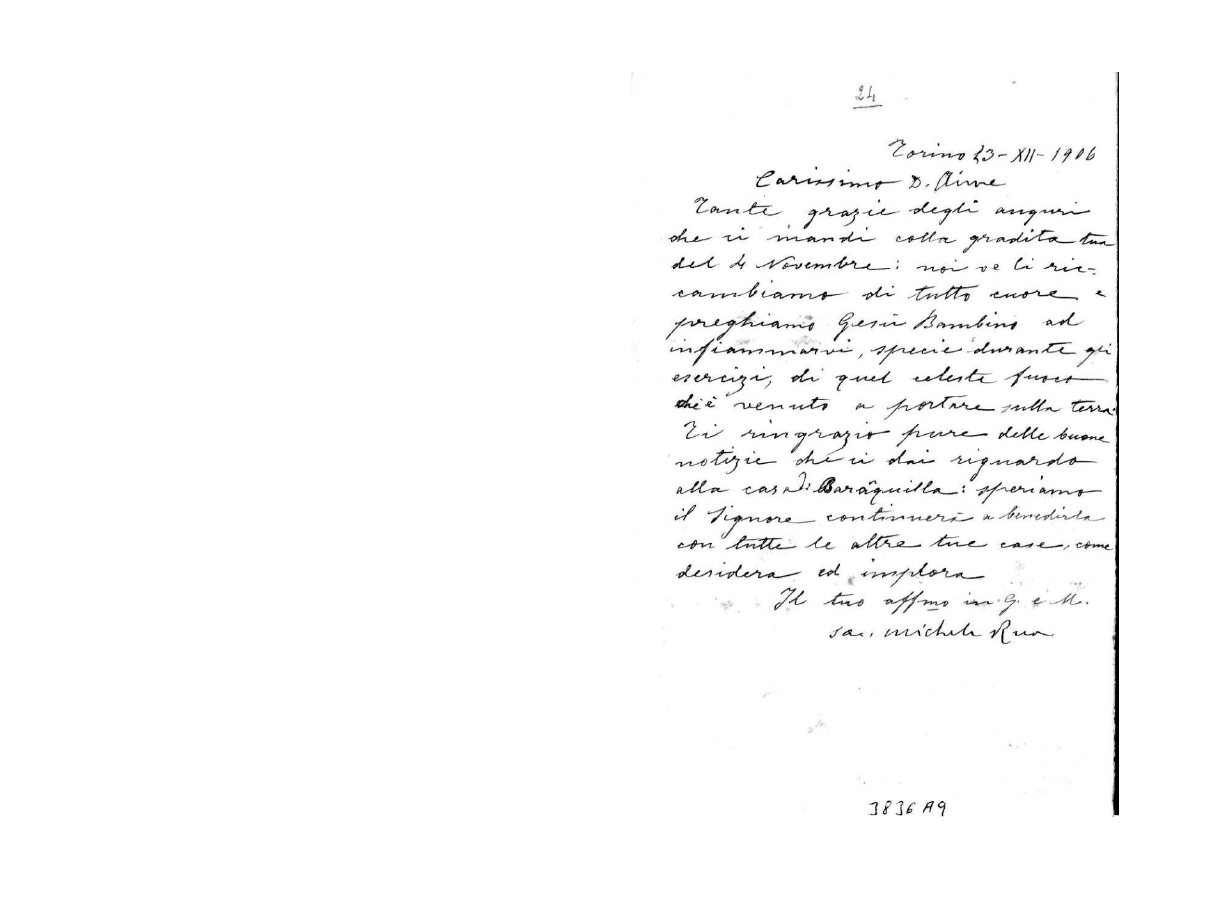 24
Torino 23-XII-1906
Carissimo D. Aime
Tante grazie degli auguri
che ci mandi colla gradita tua
del 4 Novembre: noi ve li ric=
cambiamo di tutto cuore e
preghiamo Gesù Bambino ad
infiammarvi, specie durante gli
esercizi, di quel celeste fuoco
che è venuto a portare sulla terra.
Ti ringrazio pure delle buone
notizie che ci dai riguardo
alla casa di Baraquilla: speriamo
il Signore continuerà a benedirla
con tutte le altre tue case, come
desidera ed implora
Il tuo affmo in G. e M.
sac. Michele Rua
3836 A9